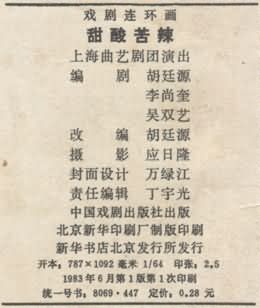 戏剧连环画
甜酸苦辣
上海曲艺剧团演出
编 剧 胡廷源
李尚奎
吴双艺
改 编 胡廷源
摄 影 应日隆
封面设计 万绿江
责任编辑 丁宇光
中国戏剧出版社出版
北京新华印刷厂制版印刷
新华书店北京发行所发行
开本：787×1092 毫米 1/64 印张：2.5
1983年6月第1版第1次印刷
统一书号：8069·447 定价：0.28 元